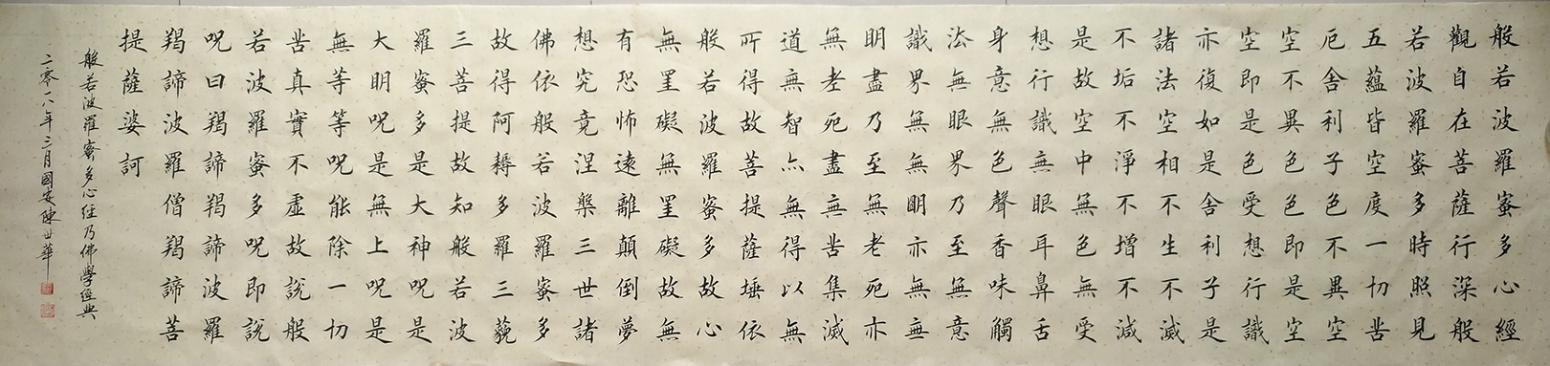 般若波羅蜜多心經
觀自在菩薩行深般
若波羅蜜多時照見
五蘊皆空度一切苦
厄舍利子色不異空
空不異色色即是空
空即是色受想行識
亦復如是舍利子是
諸法空相不生不滅
不垢不淨不增不減
是故空中無色無受
想行識無眼耳鼻舌
身意無色聲香味觸
法無眼界乃至無意
識界無無明亦無無
明盡乃至無老死亦
無老死盡無苦集滅
道無智亦無得以無
所得故菩提薩埵依
般若波羅蜜多故心
無罣礙無罣礙故無
有恐怖遠離顛倒夢
想究竟涅槃三世諸
佛依般若波羅蜜多
故得阿耨多羅三藐
三菩提故知般若波
羅蜜多是大神呪是
大明呪是無上呪是
無等等呪能除一切
苦真實不虛故說般
若波羅蜜多呪即說
呪曰羯諦羯諦波羅
羯諦波羅僧羯諦菩
提薩婆訶
般若波羅蜜多心經乃佛學經典
二零一八年三月國安陳世華